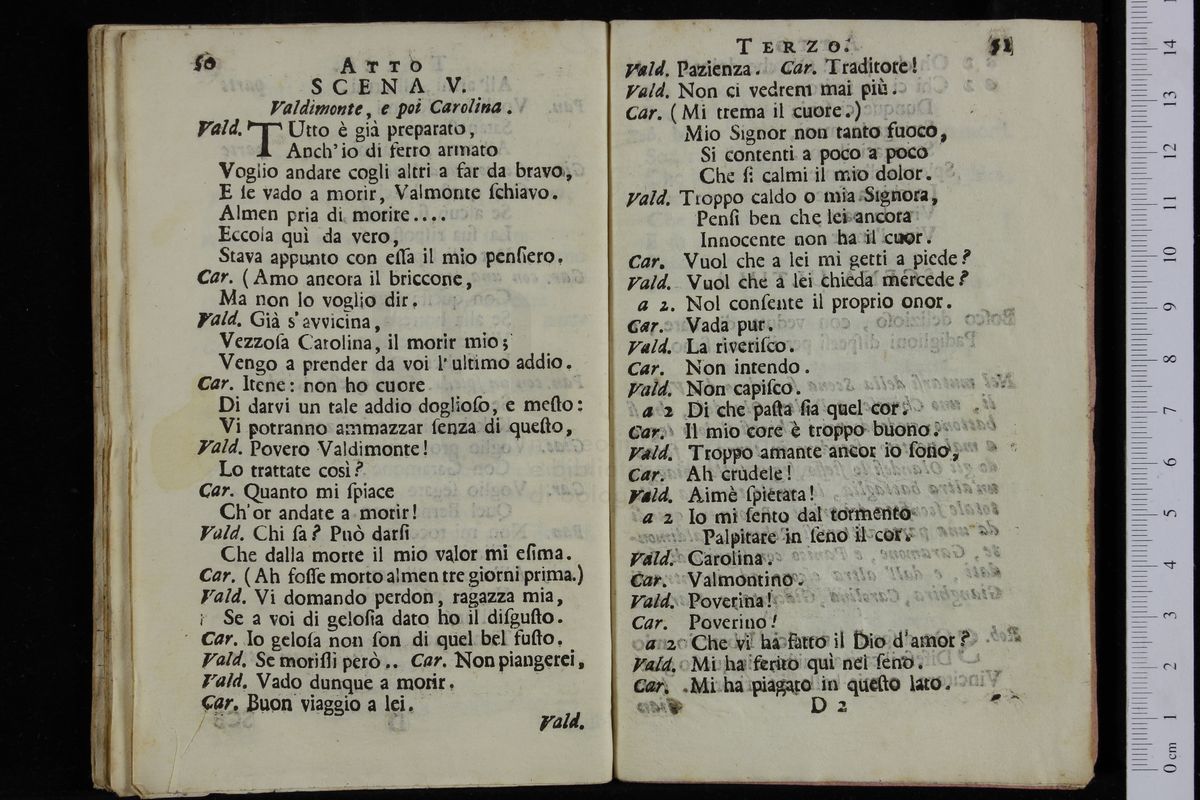 50
ATTO
SCENA V.
Valdimonte, e poi Carolina.
Vald. TUtto è già preparato,
Anch'io di ferro armato
Voglio andare cogli altri a far da bravo,
E ſe vado a morir, Valmonte ſchiavo.
Almen pria di morire....
Eccola quì da vero,
Stava appunto con eſſa il mio penſiero.
Car. (Amo ancora il briccone,
Ma non lo voglio dir.
Vald. Già s'avvicina,
Vezzoſa Carolina, il morir mio;
Vengo a prender da voi l'ultimo addio.
Car. Itene: non ho cuore
Di darvi un tale addio doglioſo, e meſto:
Vi potranno ammazzar ſenza di queſto,
Vald. Povero Valdimonte!
Lo trattate così?
Car. Quanto mi ſpiace
Ch'or andate a morir!
Vald. Chi ſa? Può darſi
Che dalla morte il mio valor mi eſima.
Car. (Ah foſſe morto almen tre giorni prima.)
Vald. Vi domando perdon, ragazza mia,
Se a voi di geloſia dato ho il diſguſto.
Car. Io geloſa non ſon di quel bel fuſto.
Vald. Se moriſſi però.. Car. Non piangerei,
Vald. Vado dunque a morir.
Car. Buon viaggio a lei.
Vald.
TERZO.
51
Vald. Pazienza. Car. Traditore!
Vald. Non ci vedrem mai più.
Car. (Mi trema il cuore.)
Mio Signor non tanto fuoco,
Si contenti a poco a poco
Che ſi calmi il mio dolor.
Vald. Troppo caldo o mia Signora,
Penſi ben che lei ancora
Innocente non ha il cuor.
Car. Vuol che a lei mi getti a piede?
Vald. Vuol che a lei chieda mercede?
a 2. Nol conſente il proprio onor.
Car. Vada pur.
Vald. La riveriſco.
Car. Non intendo.
Vald. Non capiſco.
a 2 Di che paſta ſia quel cor.
Car. Il mio core è troppo buono.
Vald. Troppo amante ancor io ſono,
Car. Ah crudele!
Vald. Aimè ſpietata!
a 2 Io mi ſento dal tormento
Palpitare in ſeno il cor.
Vald. Carolina.
Car. Valmontino.
Vald. Poverina!
Car. Poverino!
a 2 Che vi ha fatto il Dio d'amor?
Vald. Mi ha ferito quì nel ſeno.
Car. Mi ha piagato in queſto lato.
D 2